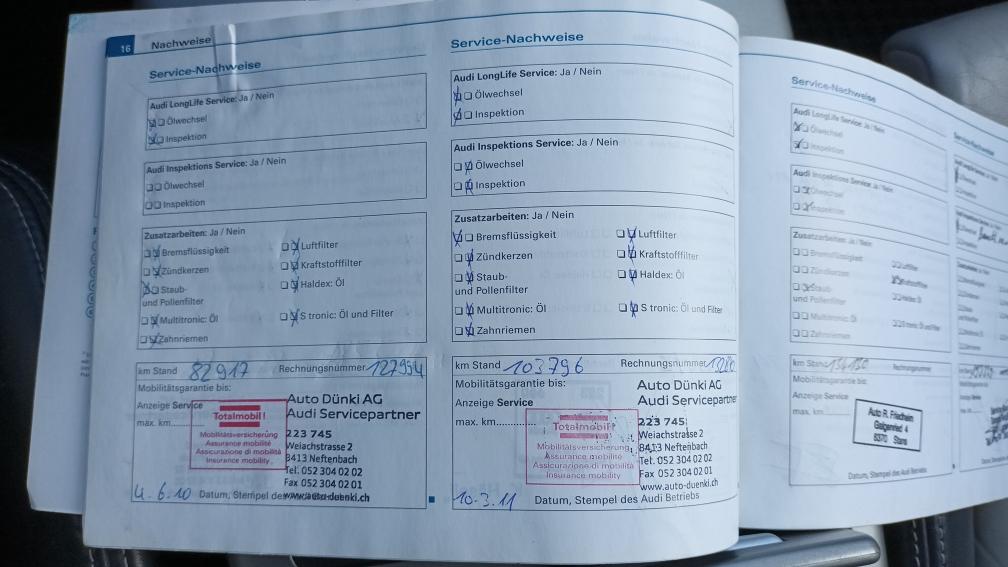 16 Nachweise
Service-Nachweise
Audi LongLife Service: Ja / Nein
Ölwechsel
Inspektion
Audi Inspektions Service: Ja / Nein
Ölwechsel
Inspektion
Zusatzarbeiten: Ja / Nein
Bremsflüssigkeit
Luftfilter
Zündkerzen
Kraftstofffilter
Staub-
und Pollenfilter
Haldex: Öl
Multitronic: Öl
S tronic: Öl und Filter
Zahnriemen
km Stand 82917 Rechnungsnummer 127994
Mobilitätsgarantie bis:
Anzeige Service
max. km
Totalmobil!
Mobilitätsversicherung
Assurance mobilité
Assicurazione di mobilità
Insurance mobility
Auto Dünki AG
Audi Servicepartner
223 745
Weiachstrasse 2
8413 Neftenbach
Tel. 052 304 02 02
Fax 052 304 02 01
www.auto-duenki.ch
4.6.10 Datum, Stempel des
Service-Nachweise
Audi LongLife Service: Ja / Nein
Ölwechsel
Inspektion
Audi Inspektions Service: Ja / Nein
Ölwechsel
Inspektion
Zusatzarbeiten: Ja / Nein
Bremsflüssigkeit
Luftfilter
Zündkerzen
Kraftstofffilter
Staub-
und Pollenfilter
Haldex: Öl
Multitronic: Öl
S tronic: Öl und Filter
Zahnriemen
km Stand 103796 Rechnungsnummer
Mobilitätsgarantie bis:
Anzeige Service
max. km
Totalmobil!
Mobilitätsversicherung
Assurance mobilité
Assicurazione di mobilità
Insurance mobility
Auto Dünki AG
Audi Servicepartner
223 745
Weiachstrasse 2
8413 Neftenbach
Tel. 052 304 02 02
Fax 052 304 02 01
www.auto-duenki.ch
10.3.11 Datum, Stempel des Audi Betriebs
Service-Nachweise
Audi LongLife Service: Ja / Nein
Ölwechsel
Inspektion
Audi Inspektions Service: Ja / Nein
Ölwechsel
Inspektion
Zusatzarbeiten: Ja / Nein
Bremsflüssigkeit
Luftfilter
Zündkerzen
Kraftstofffilter
Staub-
und Pollenfilter
Haldex: Öl
Multitronic: Öl
S tronic: Öl und Filter
Zahnriemen
km Stand
Rechnungsnummer
Mobilitätsgarantie bis:
Anzeige Service
max. km
Auto R. Friedheim
6370 Stans
Datum, Stempel des Audi Betriebs